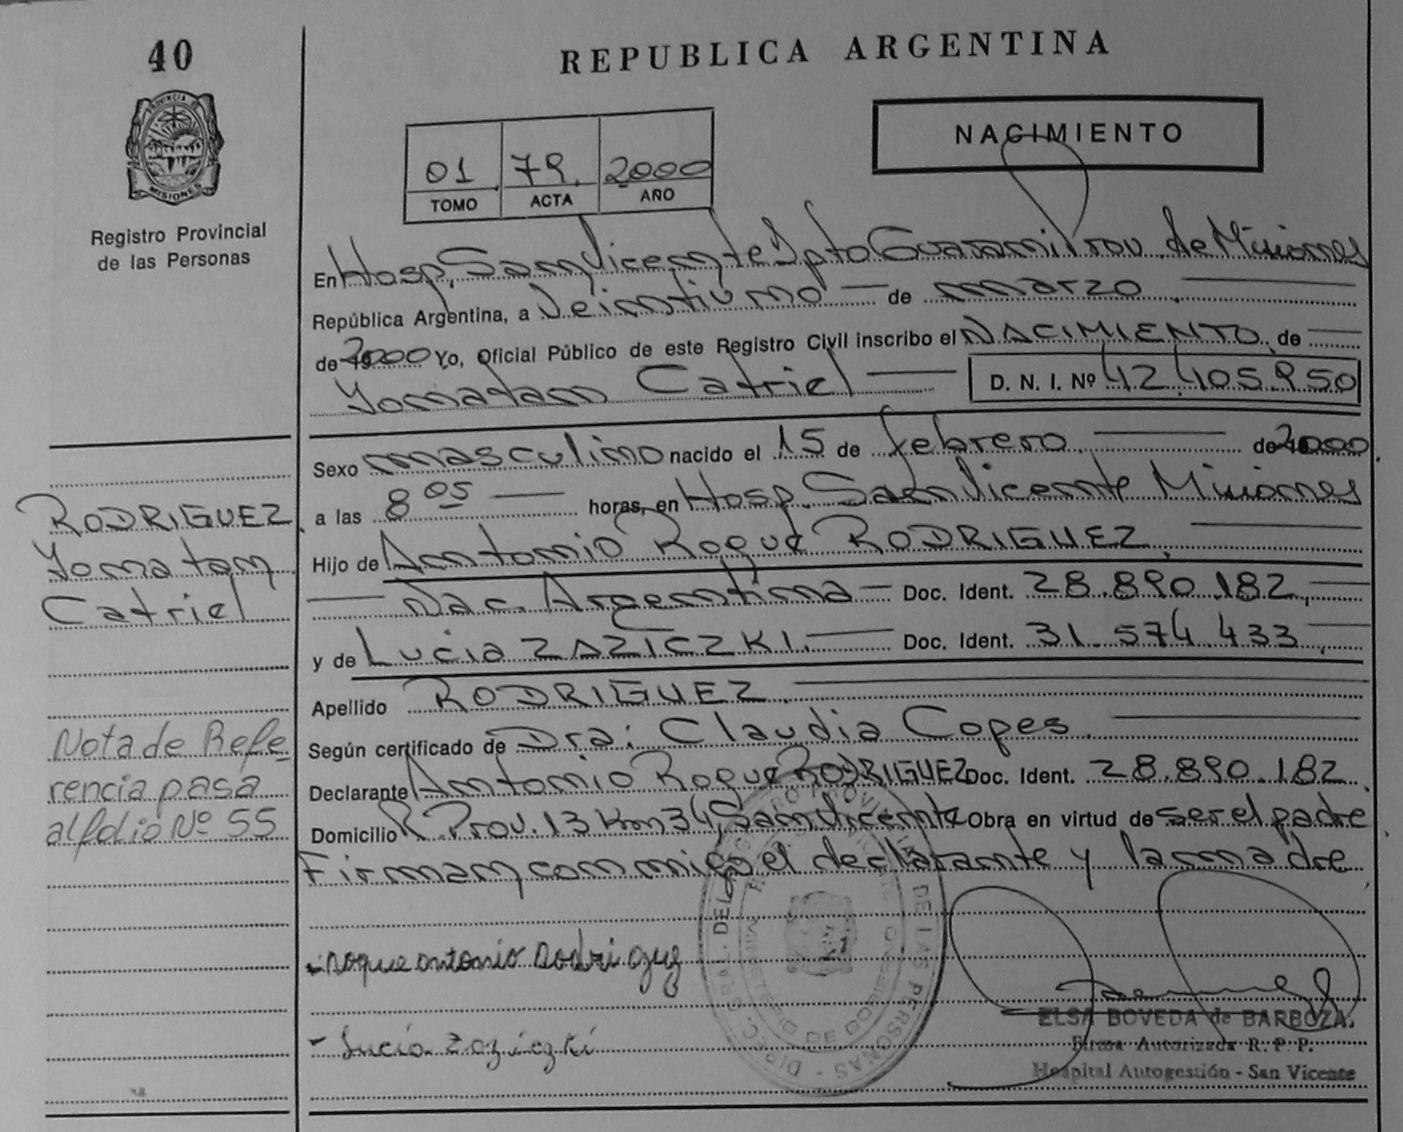 40
REPUBLICA ARGENTINA
PROVINCIA DE
MISIONES
Registro Provincial
de las Personas
01 79. 2000
TOMO ACTA AÑO
NACIMIENTO
En Hosp. San Vicente Dpto Guarani Prov. de Misiones
República Argentina, a Veintiuno de marzo
de 2000 Yo, Oficial Público de este Registro Civil inscribo el NACIMIENTO de
Yonatan Catriel D. N. I. Nº 42.405.950
Sexo masculino nacido el 15 de febrero de 2000
a las 8 05 horas, en Hosp. San Vicente Misiones
Hijo de Antonio Roque RODRIGUEZ
Nac. Argentina Doc. Ident. 28.890.182
y de Lucia ZAZICZKI. Doc. Ident. 31.574.433
Apellido RODRIGUEZ
Según certificado de Dra: Claudia Copes
Declarante Antonio Roque RODRIGUEZ Doc. Ident. 28.890.182
Domicilio R. Prov. 13 Km 34, San Vicente Obra en virtud de ser el padre
Firman conmigo el declarante y la madre
RODRIGUEZ
Yonatan
Catriel
Nota de Refe-
rencia pasa
al folio Nº 55
- roque antonio Rodriguez
- Lucia Zaziczki
DE LAS PERSONAS - DIREC. GRAL. DEL
ELSA BOVEDA de BARBOZA
Firma Autorizada R. P. P.
Hospital Autogestión - San Vicente